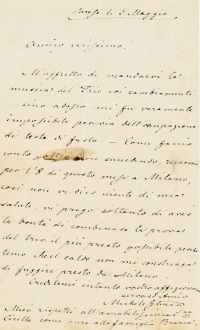 Parigi li 3 Maggio
Amico carissimo.
M'affretto di mandarvi la
musica del Trio coi cambiamenti
sino adesso mi fu veramente
impossibile per via dell'occupazione
di testa di fardo — Come fanno
conto non essendo
per l'8 di questo mese a Milano,
così non vi dico niente di mia
salute, vi prego soltanto di aver
la bontà di combinare la prova
del trio il più presto possibile
temo che il caldo non mi costringa
di fuggire presto da Milano.
Credetemi intanto vostro
Amico
Michele Glinka
Miei rispetti all'amabilissima
Cirilla come pure alla famiglia